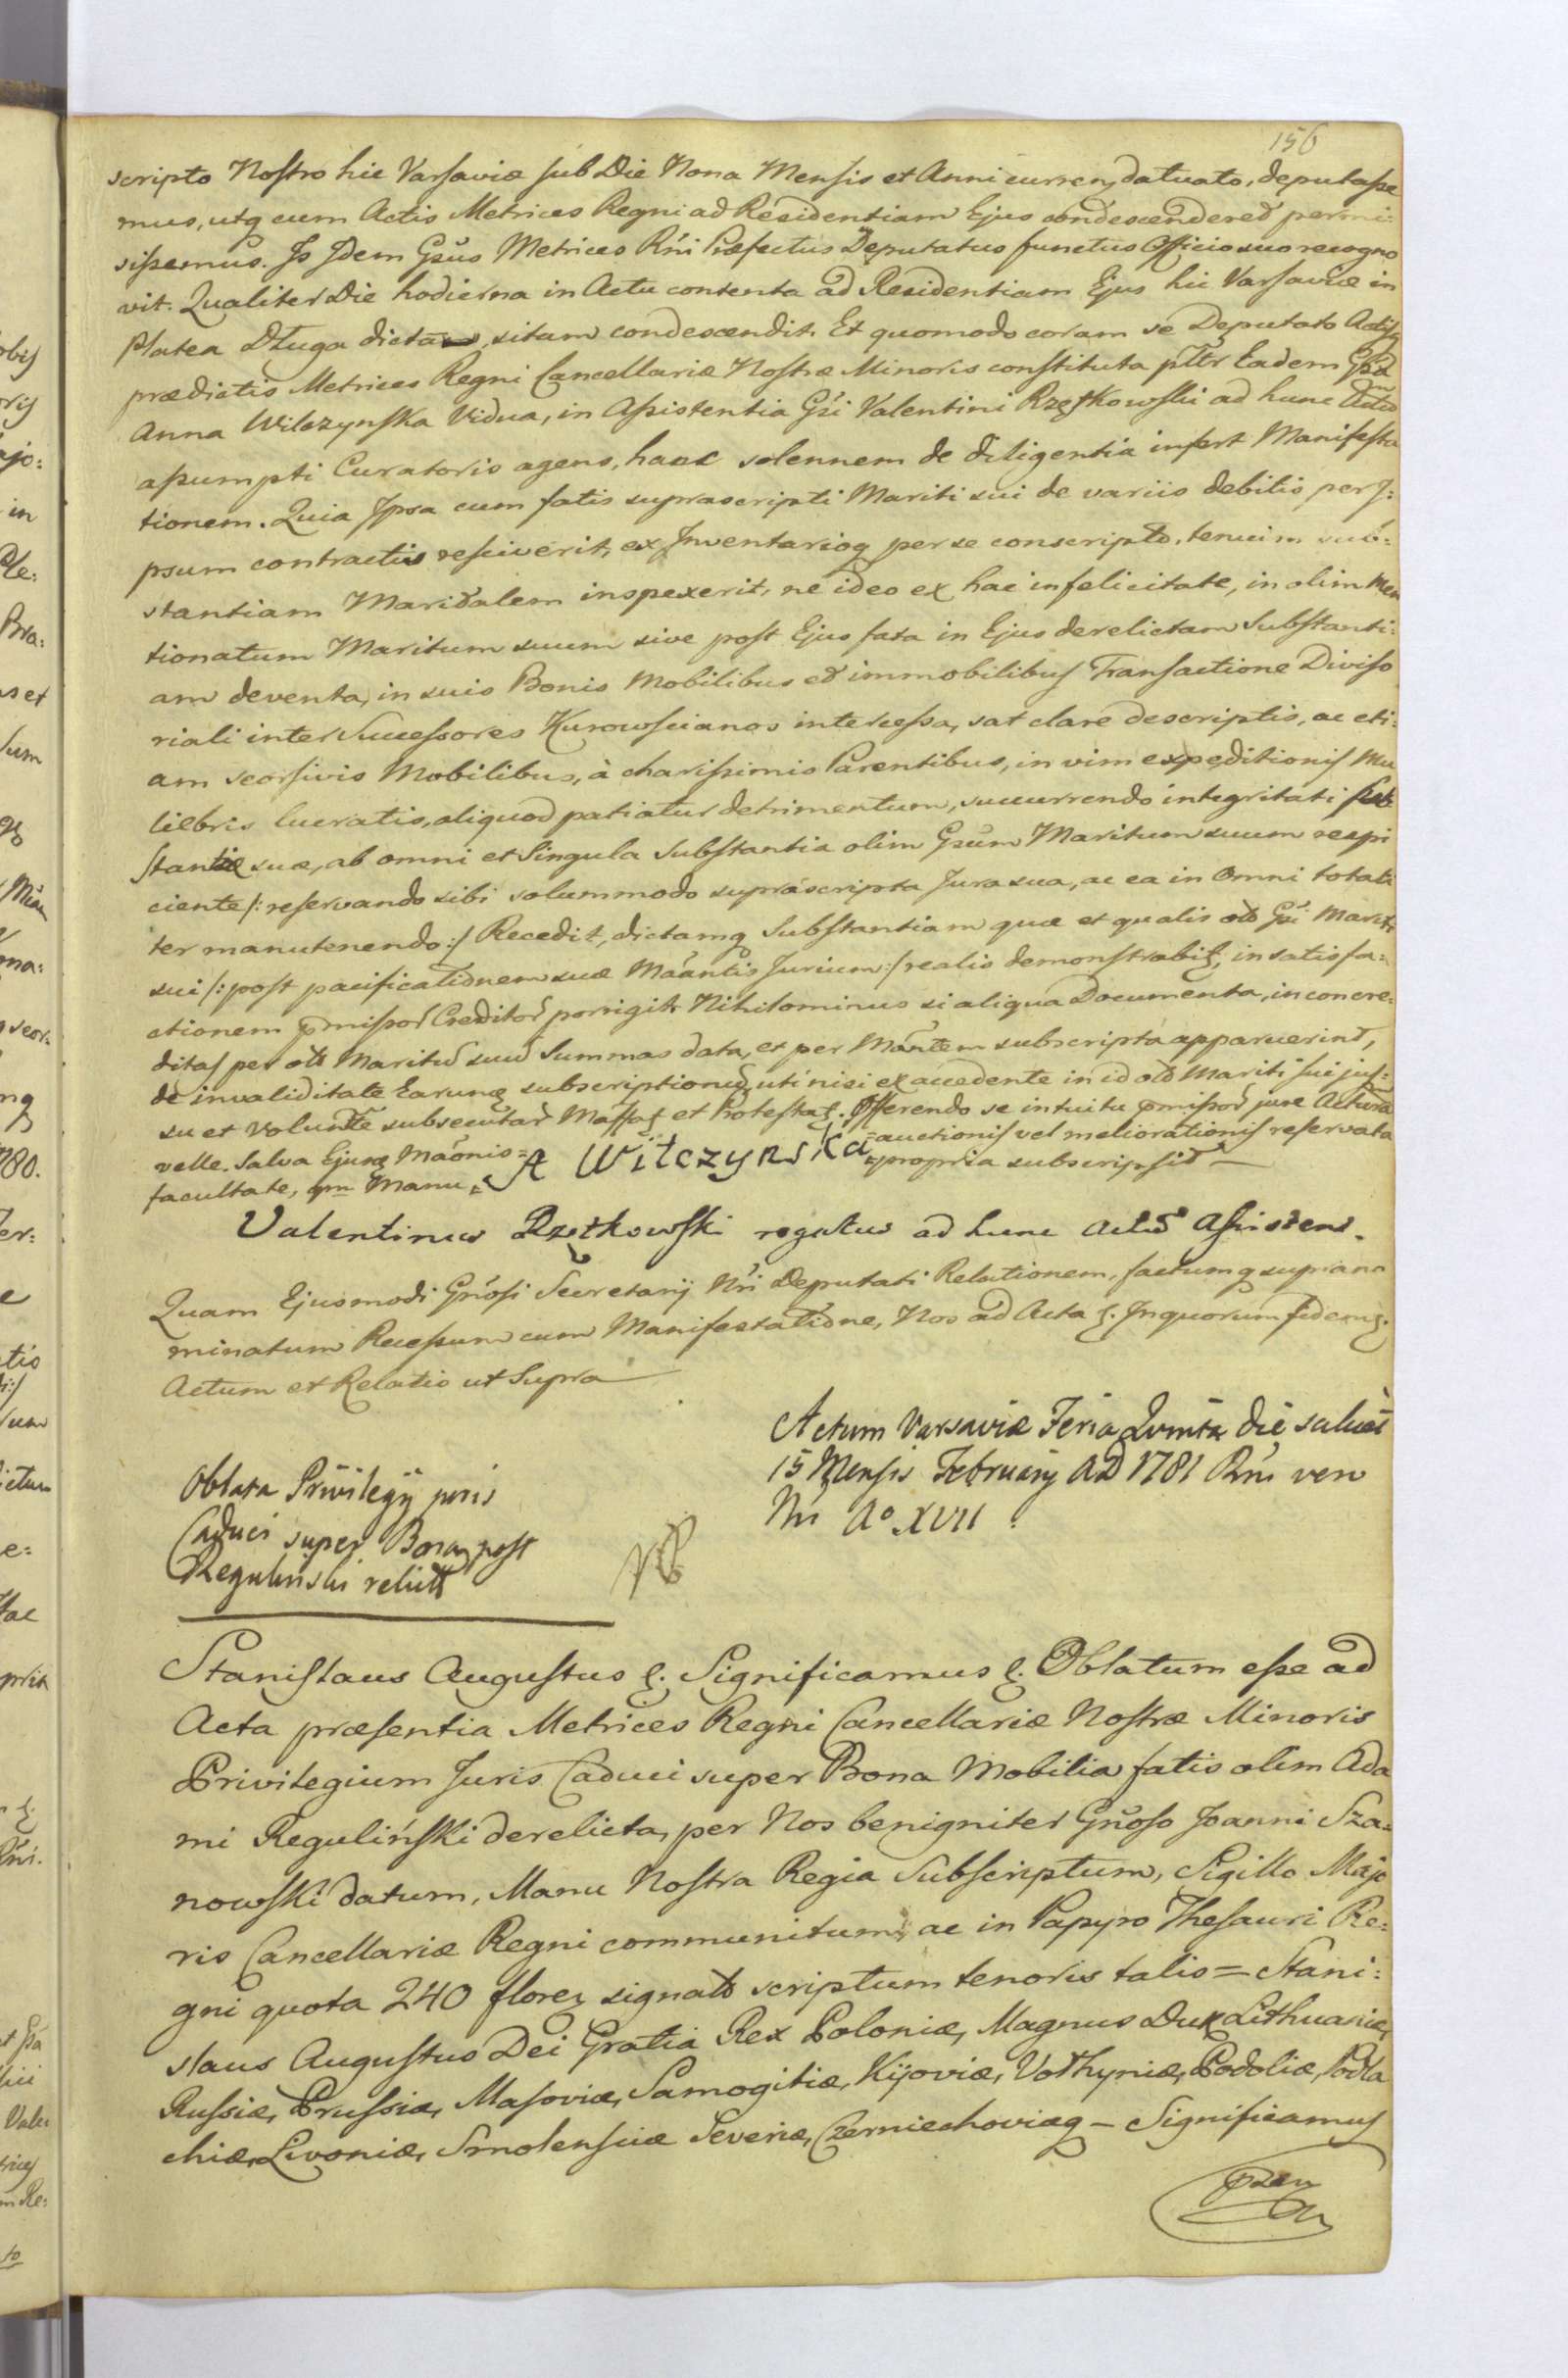 156
scripto Nostro hic Varsaviæ sub Die Nona Mensis et Anni curren, datuato, deputasse
mus, utq cum Actis Metrices Regni ad Residentiam Ejus condescenderet permi=
sissemus. Is Idem Gsus Metrices Rni Præfectus Deputatus functus Officio suo recogno
vit. Qualiter Die hodierna in Actu contenta ad Residentiam Ejus hic Varsaviæ in
Platea Długa dictam, sitam condescendit. Et quomodo coram se Deputato Actisq
prædictis Metrices Regni Cancellariæ Nostræ Minoris constituta psltr Eadem Gsa
Anna Wilczynska Vidua, in Assistentia Gsi Valentini Rzętkowski ad hunc Actum
assumpti Curatoris agens, hanc solennem de diligentia infert Manifesta
tionem. Quia Ipsa cum fatis suprascripti Mariti sui de variis debitis per I=
psum contractis resciverit, ex Inventarioq per se conscripto, tenuim sub=
stantiam Maritalem inspexerit, ne ideo ex hac infelicitate, in olim Men
tionatum Maritum suum sive post Ejus fata in Ejus derelictam Substanti=
am deventa, in suis Bonis Mobilibus et immobilibus Transactione Diviso
riali inter Successores Kurowscianos intercessa, sat clare descriptis, ac eti=
am scorsivis Mobilibus, à charissimis Parentibus, in vim expeditionis Mu
liebris lucratis, aliquod patiatur detrimentum, succurrendo integritati sub
stantiæ suæ, ab omni et Singula Substantia olim Gsum Maritum suum respi
ciente /: reservando sibi solummodo suprascripta Jura sua, ac ea in Omni totali
ter manutenendo :/ Recedit, dictamq Substantiam quæ et qualis olo Gsi Mariti
sui /: post pacificationem suæ Máantis Jurium :/ realis demonstrabit, in satisfa=
ctionem pmissor Creditor porrigit. Nihilominus si aliqua Documenta, in concre=
ditas per olo Maritu suu Summas data, et per Mántem subscripta apparuerint,
de invaliditate Earunq subscriptionu, uti nisi ex accedente in id olo Mariti sui jus=
su et volunte subsecutar Massaq et Protestaq. Offerendo se intuitu pmissor jure Actura
velle. Salva Ejusq Máonis = auctionis vel meliorationis reservata
facultate, qm Manu = A Wilczynska = propria subscripsit —
Valentinus Rzętkowski rogatus ad hunc Actu Assistens.
Quam Ejusmodi Gnosi Secretarij Nri Deputati Relationem, factumq supra no
minatum Recessum cum Manifestatione, Nos ad Acta ꝫ. In quorum fidem ꝫ.
Actum et Relatio ut Supra
Actum Varsaviæ Feria Quinta die scilicet
15 Mensis February AD 1781 Rni vero
Nri Ao XVII.
Oblata Privilegij juris
Caduci super Bona post
Regulinski relict
Stanislaus Augustus ꝫ. Significamus ꝫ. Oblatum esse ad
Acta præsentia Metrices Regni Cancellariæ Nostræ Minoris
Privilegium Juris Caduci super Bona Mobilia fatis olim Ada
mi Reguliński derelicta, per Nos benigniter Gnoso Joanni Sza=
nowski datum, Manu Nostra Regia Subscriptum, Sigillo Majo
ris Cancellariæ Regni communitum, ac in Papyro Thesauri Re=
gni quota 240 floren signato scriptum tenoris talis = Stani=
slaus Augustus Dei Gratia Rex Poloniæ, Magnus Dux Lithuaniæ,
Russiæ, Prussiæ, Masoviæ, Samogitiæ, Kijoviæ, Volhyniæ, Podoliæ, Podla
chiæ, Livoniæ, Smolensciæ Severiæ, Czerniechoviæq — Significamus